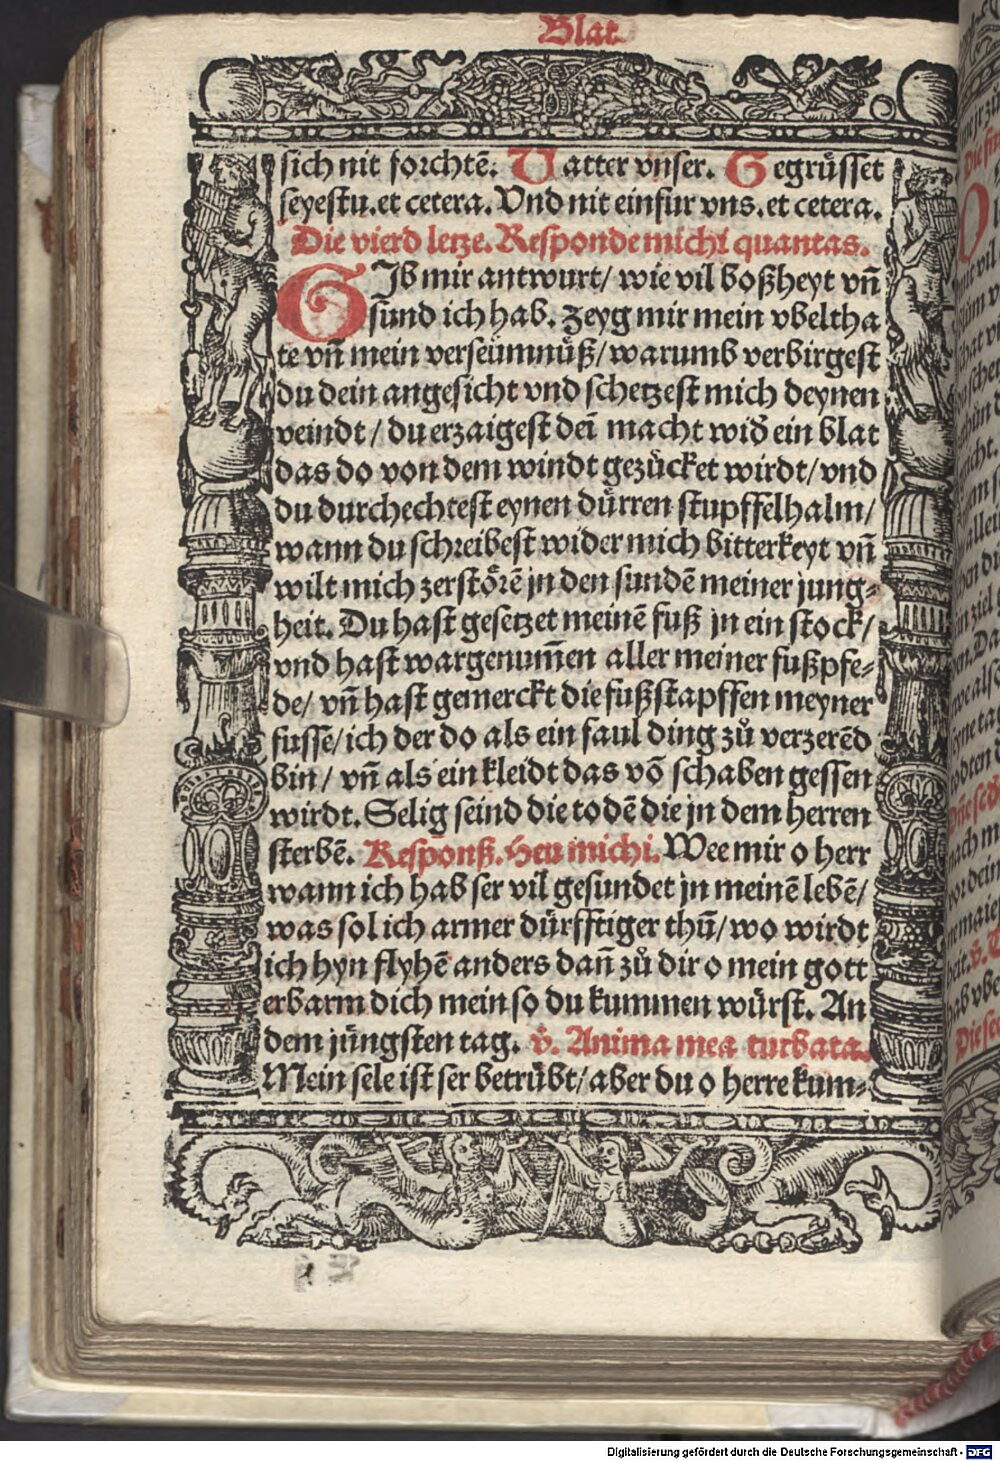 Blat
sich nit forchtē. Vatter vnser. Gegrüsset
seyestu. et cetera. Vnd nit einfur vns. et cetera.
Die vierd letze. Responde michi quantas.
GIb mir antwurt/ wie vil boßheyt vñ
sünd ich hab. zeyg mir mein vbeltha
te vñ mein verseümnüß/ warumb verbirgest
du dein angesicht vnd schetzest mich deynen
veindt/ du erzaigest deī macht wiđ ein blat
das do von dem windt gezücket wirdt/ vnd
du durchechtest eynen dürren stupffelhalm/
wann du schreibest wider mich bitterkeyt vñ
wilt mich zerstörē jn den sundē meiner jung⸗
heit. Du hast gesetzet meinē fuß jn ein stock/
vnd hast wargenum̄en aller meiner fußpfe⸗
de/ vñ hast gemerckt die fußstapffen meyner
fusse/ ich der do als ein faul ding zů verzerēd
bin/ vñ als ein kleidt das vō schaben gessen
wirdt. Selig seind die todē die jn dem herren
sterbē. Responß. Heu michi. Wee mir o herr
wann ich hab ser vil gesundet jn meinē lebē/
was sol ich armer dürfftiger thū/ wo wirdt
ich hyn flyhē anders dañ zů dir o mein gott
erbarm dich mein so du kummen würst. An
dem jüngsten tag. v̉. Anima mea turbata.
Mein sele ist ser betrübt/ aber du o herre kum⸗
Digitalisierung gefördert durch die Deutsche Forschungsgemeinschaft - DFG